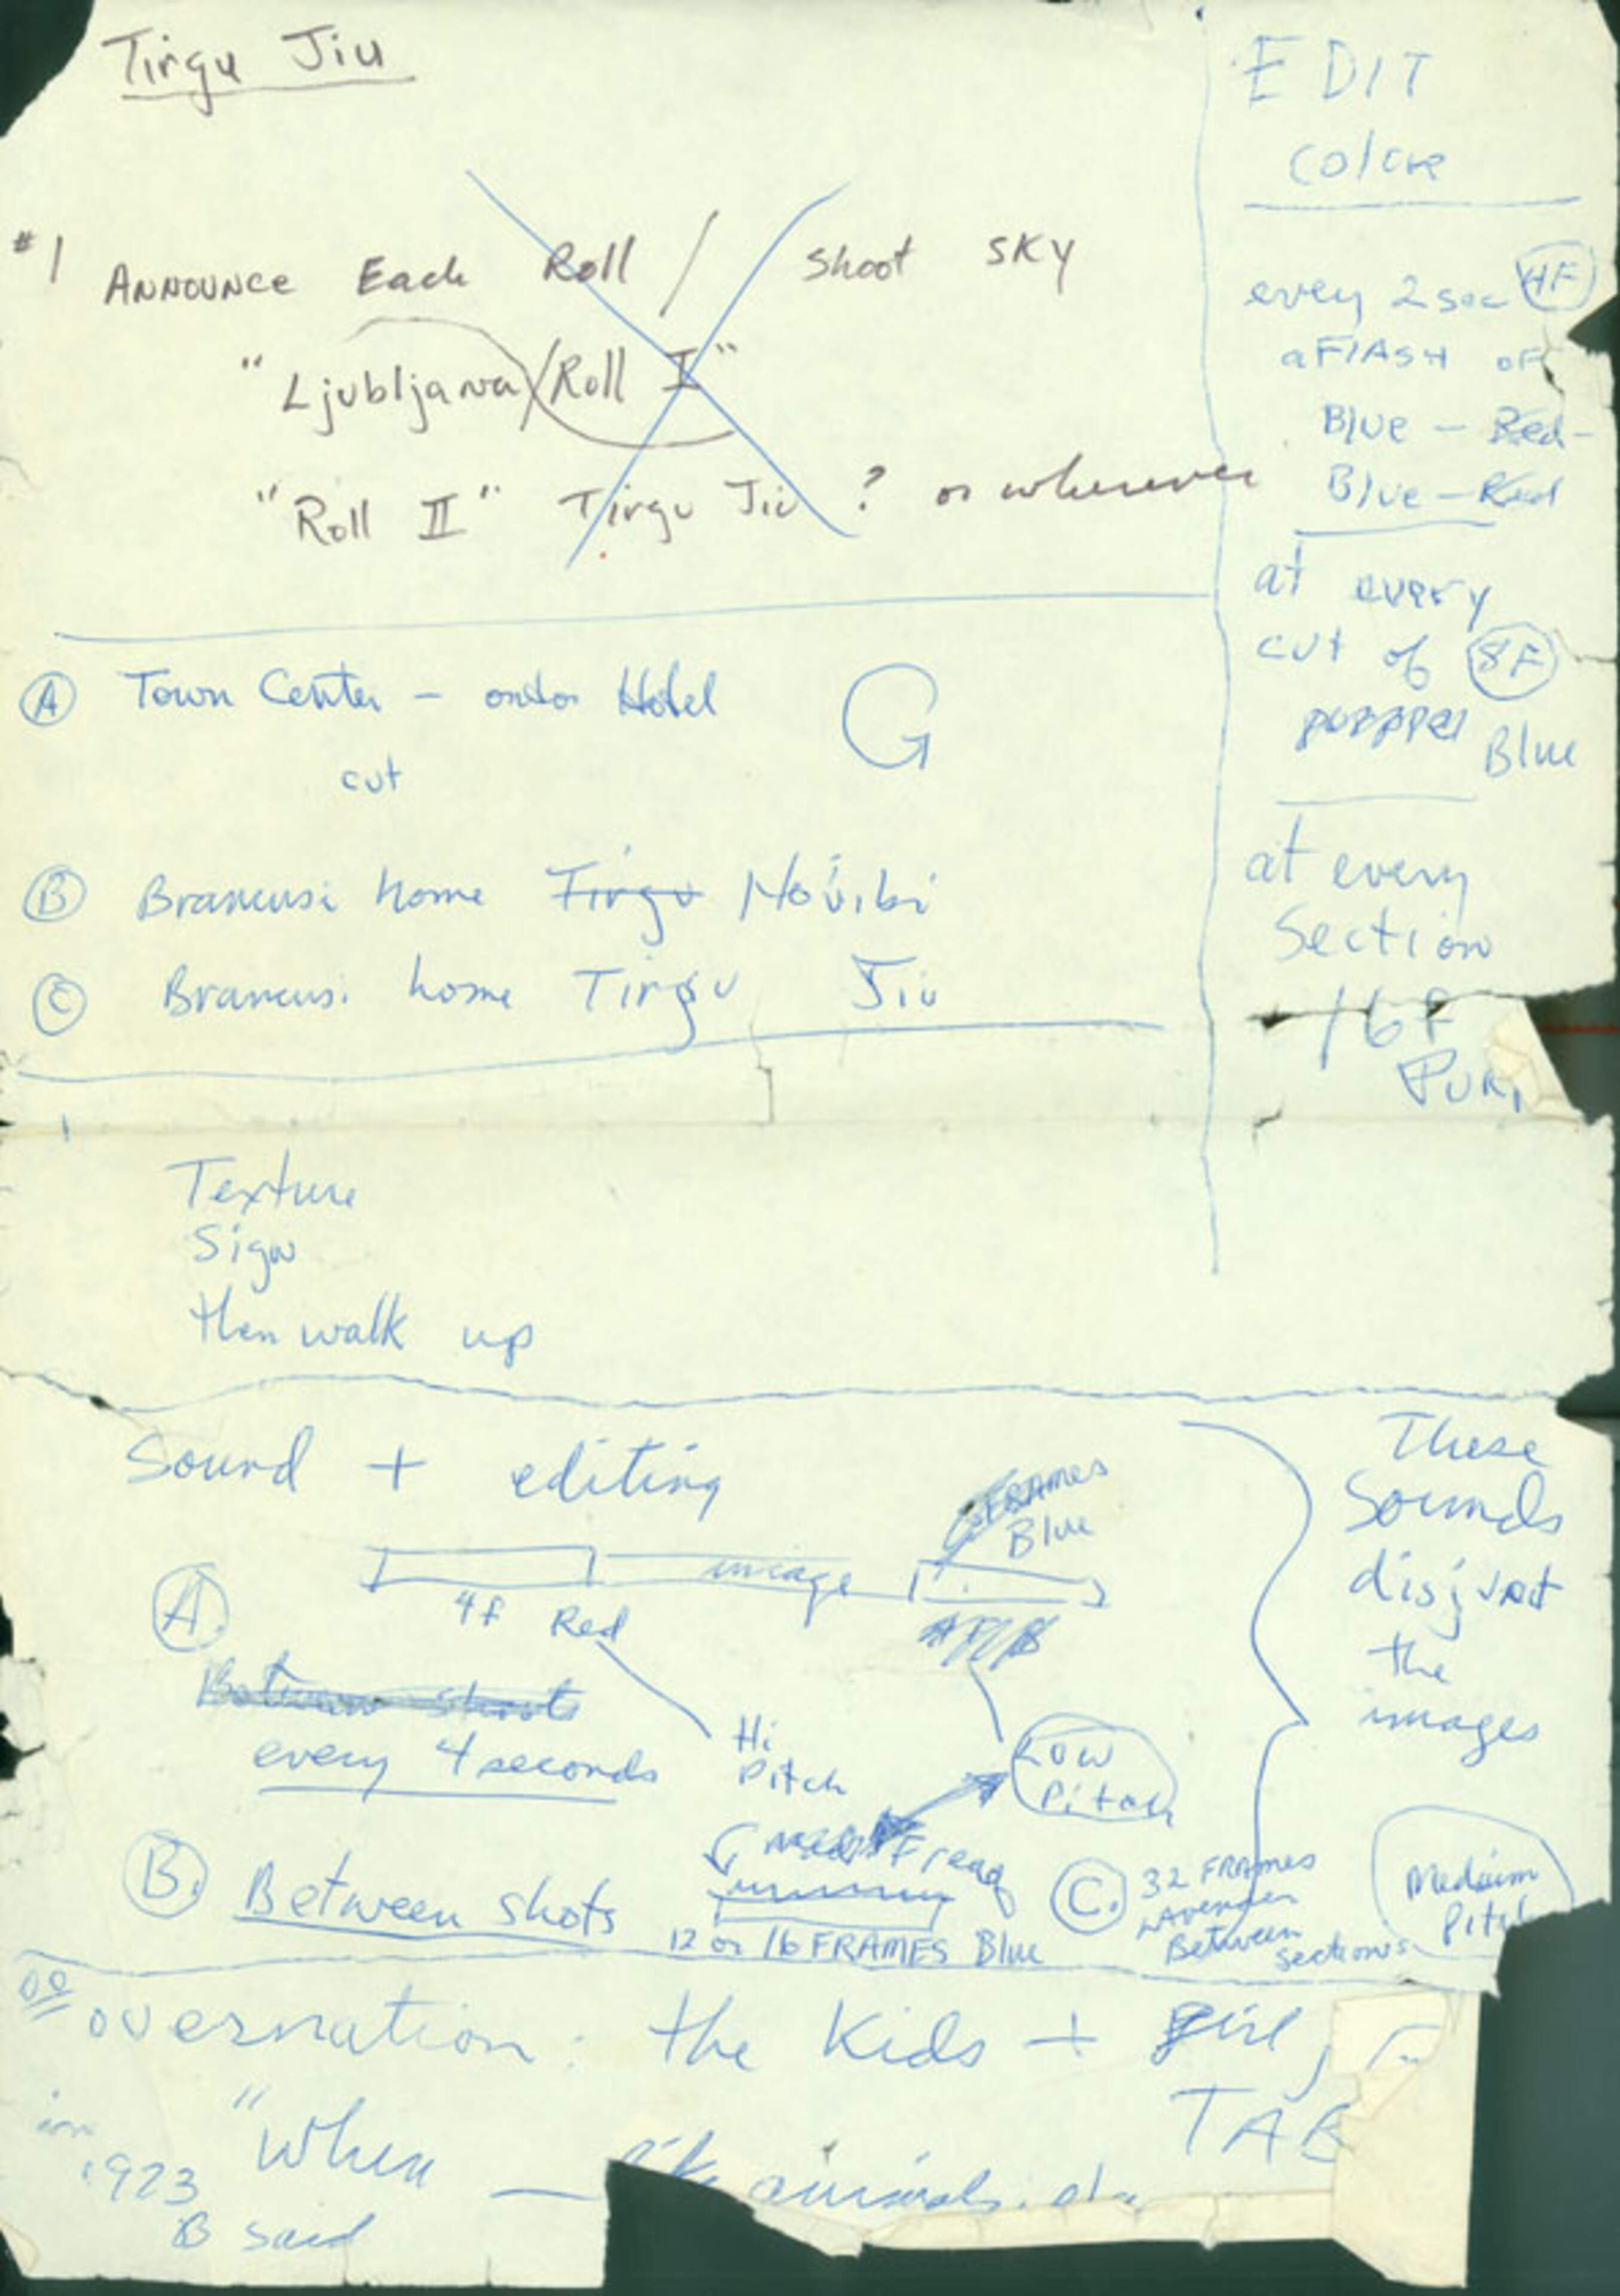 Tirgu Jiu
#1 ANNOUNCE Each Roll / Shoot SKY
"Ljubljana/Roll I"
"Roll II" Tirgu Jiu ? or wherever
EDIT
color
every 2 sec 4F
a FlASH OF
Blue - Red -
Blue - Red
at every
cut of 8F
Blue
at every
Section
16 F
PUR
A Town Center - Hotel G
cut
B Brancusi home Tirgu
C Brancusi home Tirgu Jiu
Texture
Sign
then walk up
Sound + editing
FRAMES
Blue
image
A.
4f Red
Between shots
every 4 seconds
Hi
Pitch
Low
Pitch
These
Sounds
the
images
B. Between shots
Freq
12 or 16 FRAMES Blue
C. 32 FRAMES
Lavender
Between
Sections
Medium
Pitch
overnation: the Kids + girl,
TAB
in
1923
"when —
animals.
B said